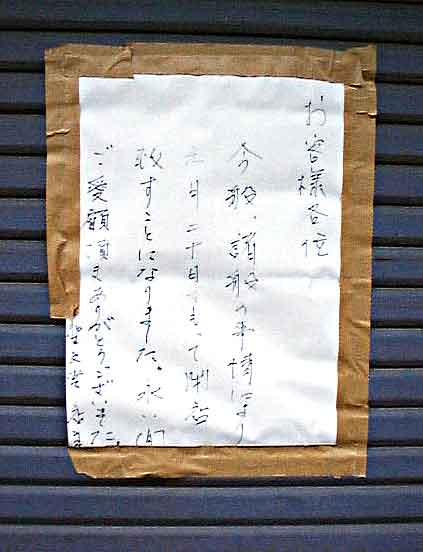 お客様各位
今般、諸般の事情により
月二十日をもって閉店
致すことになりました。永い間
ご愛顧頂きありがとうございました。
店主